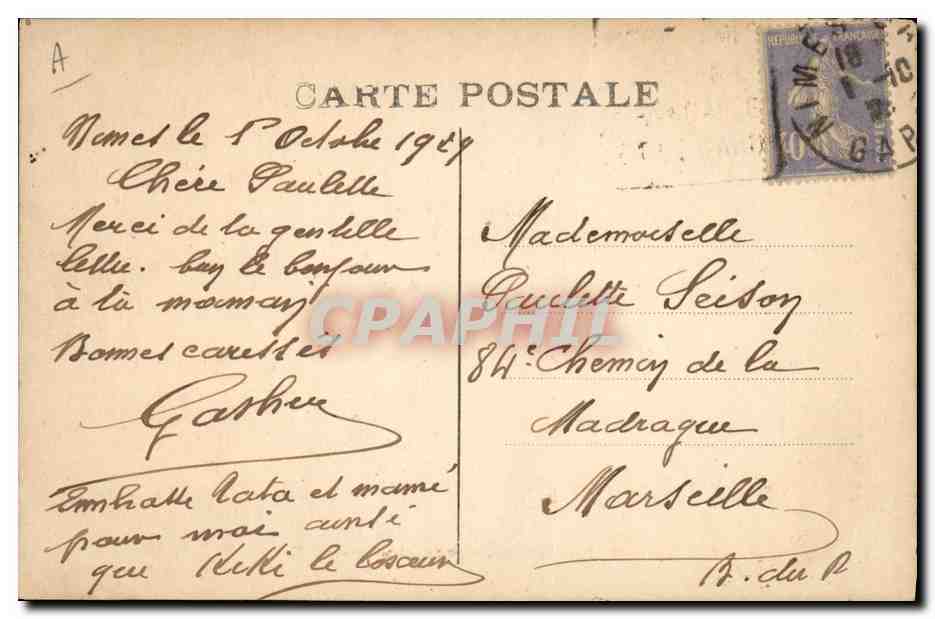 A
CARTE POSTALE
REPUBLIQUE FRANÇAISE
NIMES GARE
18
1 -10
40
Nimes le 1r Octobre 1929
Chère Paulette
Merci de la gentille
lettre. bay le bonjour
à ta maman
Bonnes caresses
Embrasse Tata et mamé
pour moi aussi
que KiKi le
Mademoiselle
Paulette Seison
84c Chemin de la
Madrague
Marseille
B. du R
CPAPHIL